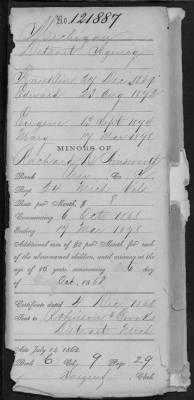 No. 121887
Michigan
Detroit Agency
Franklin 27 Dec. 1869
Edward 23 Aug 1872
Eugene 13 Sept 1874
Mary 17 Mar 1878
MINORS OF
Richard
Rank Co.
Regt. 24 Mich Vols
Rate per Month, $ 8
Commencing 6 Oct 1868
Ending 17 Mar 1878
Additional sum of $2 per Month for each
of the abovenamed children, until arriving at the
age of 16 years, commencing 6 day
of Oct. 1868
Certificate dated 4 Dec 1868
Sent to Robinson & Brooks
Detroit Mich
Act July 14, 1862.
Book 6 Vol. 9 Page 29
Sargent Clerk.